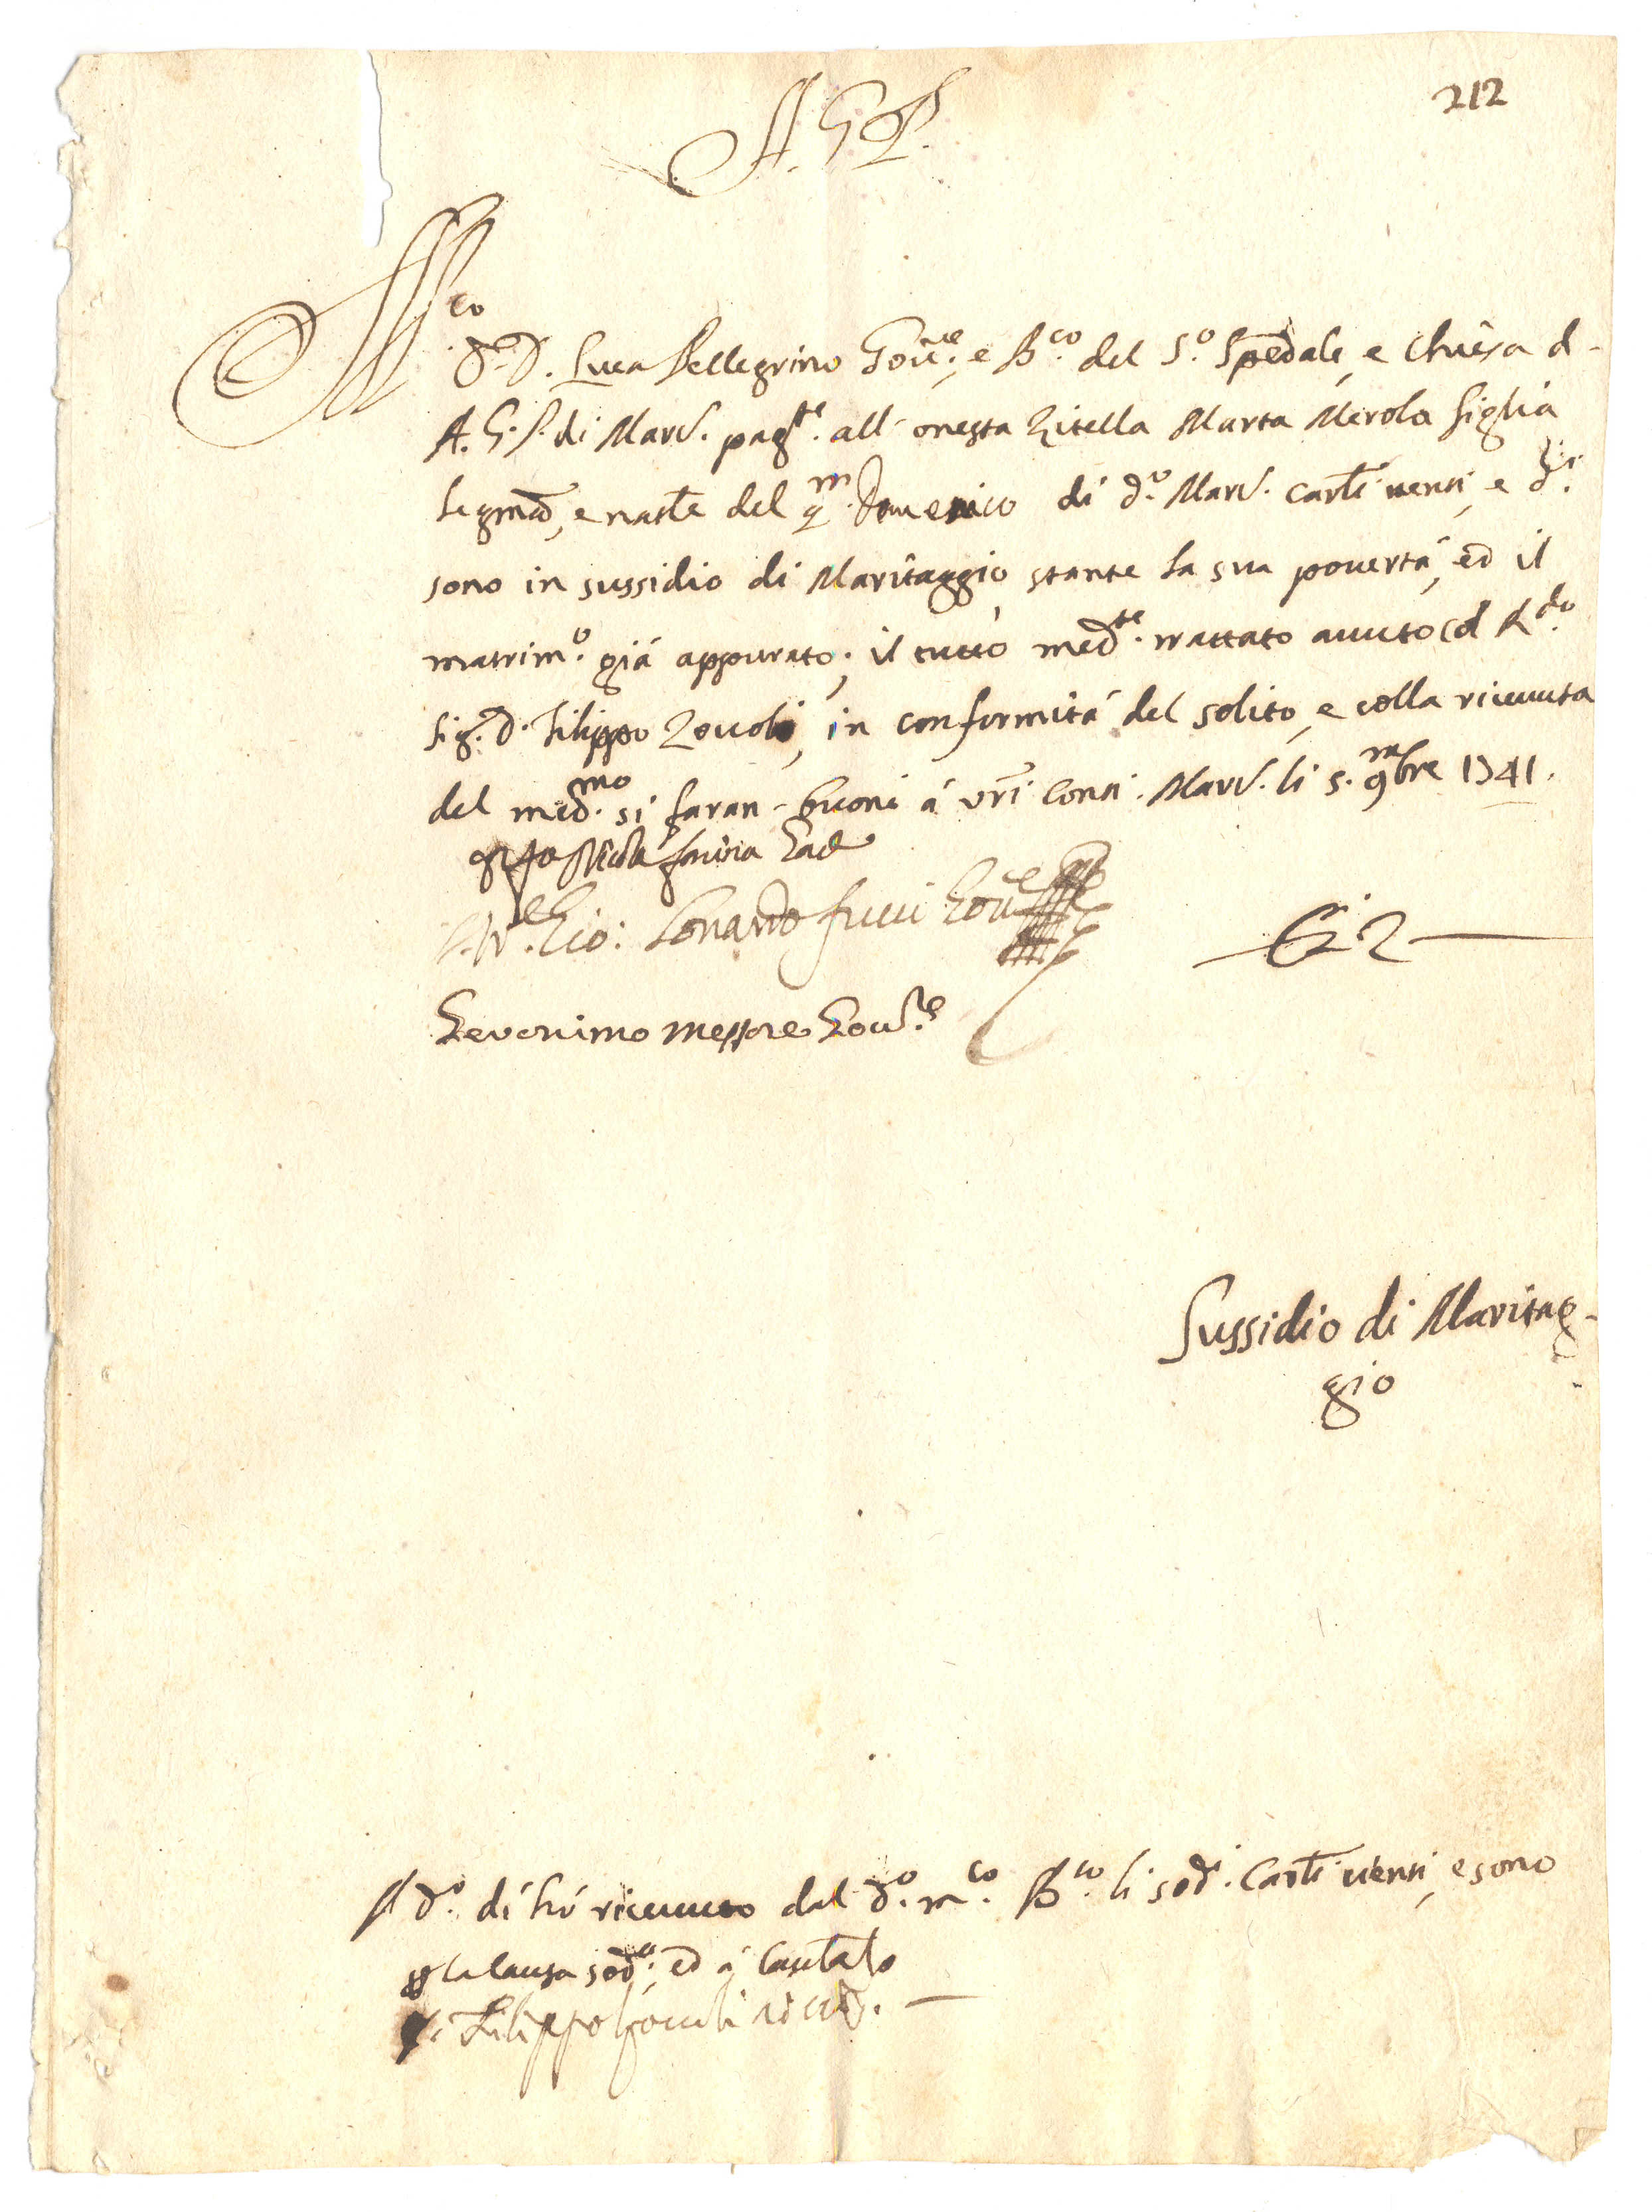 212
A. G. P.
M.co
Sr. D. Luca Pellegrino Gov.re, e B.co del S.o Spedale, e Chiesa d-
A. G. P. di Mard. pag.te all' onesta Zitella Marta Merola figlia
legma, e nãle del q.m Domenico di d.o Mard. carl.i venti, e d.i
sono in sussidio di Maritaggio stante la sua povertà, ed il
matrim.o già appurato; il tutto med.te trattato avuto col R.do
Sig. D. Filippo Zovoli, in conformità del solito, e colla ricevuta
del med.mo si faran- buoni à vr̃i conti. Mard. li 5. 9mbre 1741.
Nicola farina
Gio: Lonardo fucci Gov.re
2
Geronimo Messore Gov.re
Sussidio di Maritag-
gio
A d.o dì hò ricevuto dal d.o m.co B.co li sod.i Carl.i venti, e sono
p la causa sod.a, ed a cautela
Filippo Zovoli